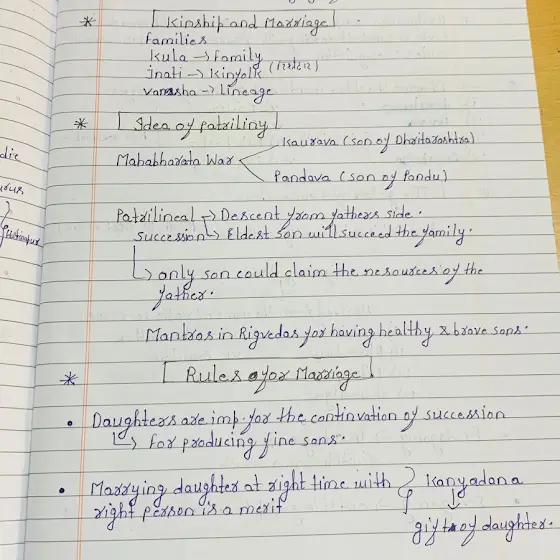 * Kinship and Marriage
families
Kula → family
Jnati → Kinfolk (रिश्तेदार)
vamsha → lineage
* Idea of patriliny
Kaurava (son of Dhritarashtra)
Mahabharata War
Pandava (son of Pandu)
Patrilineal → Descent from fathers side.
succession → Eldest son will succeed the family.
↳ only son could claim the resources of the
father.
Mantras in Rigvedas for having healthy & brave sons.
* Rules for Marriage
• Daughters are imp. for the continvation of succession
↳ for producing fine sons.
• Marrying daughter at right time with
right person is a merit
Kanyadana
↓
gift of daughter.